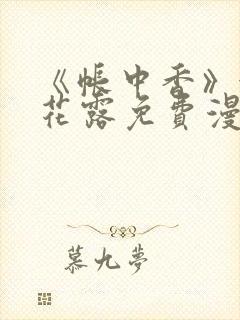 《帐中香》
花露免费漫
慕九梦